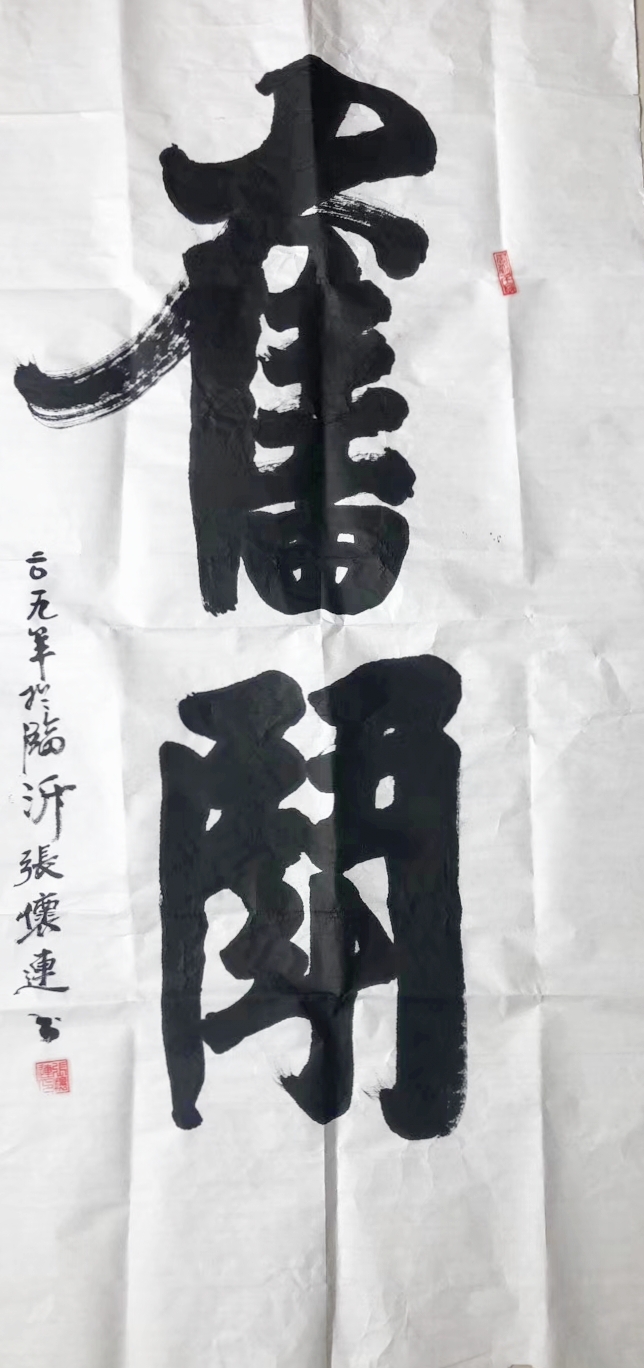 奮鬪
年於臨沂張懷連书